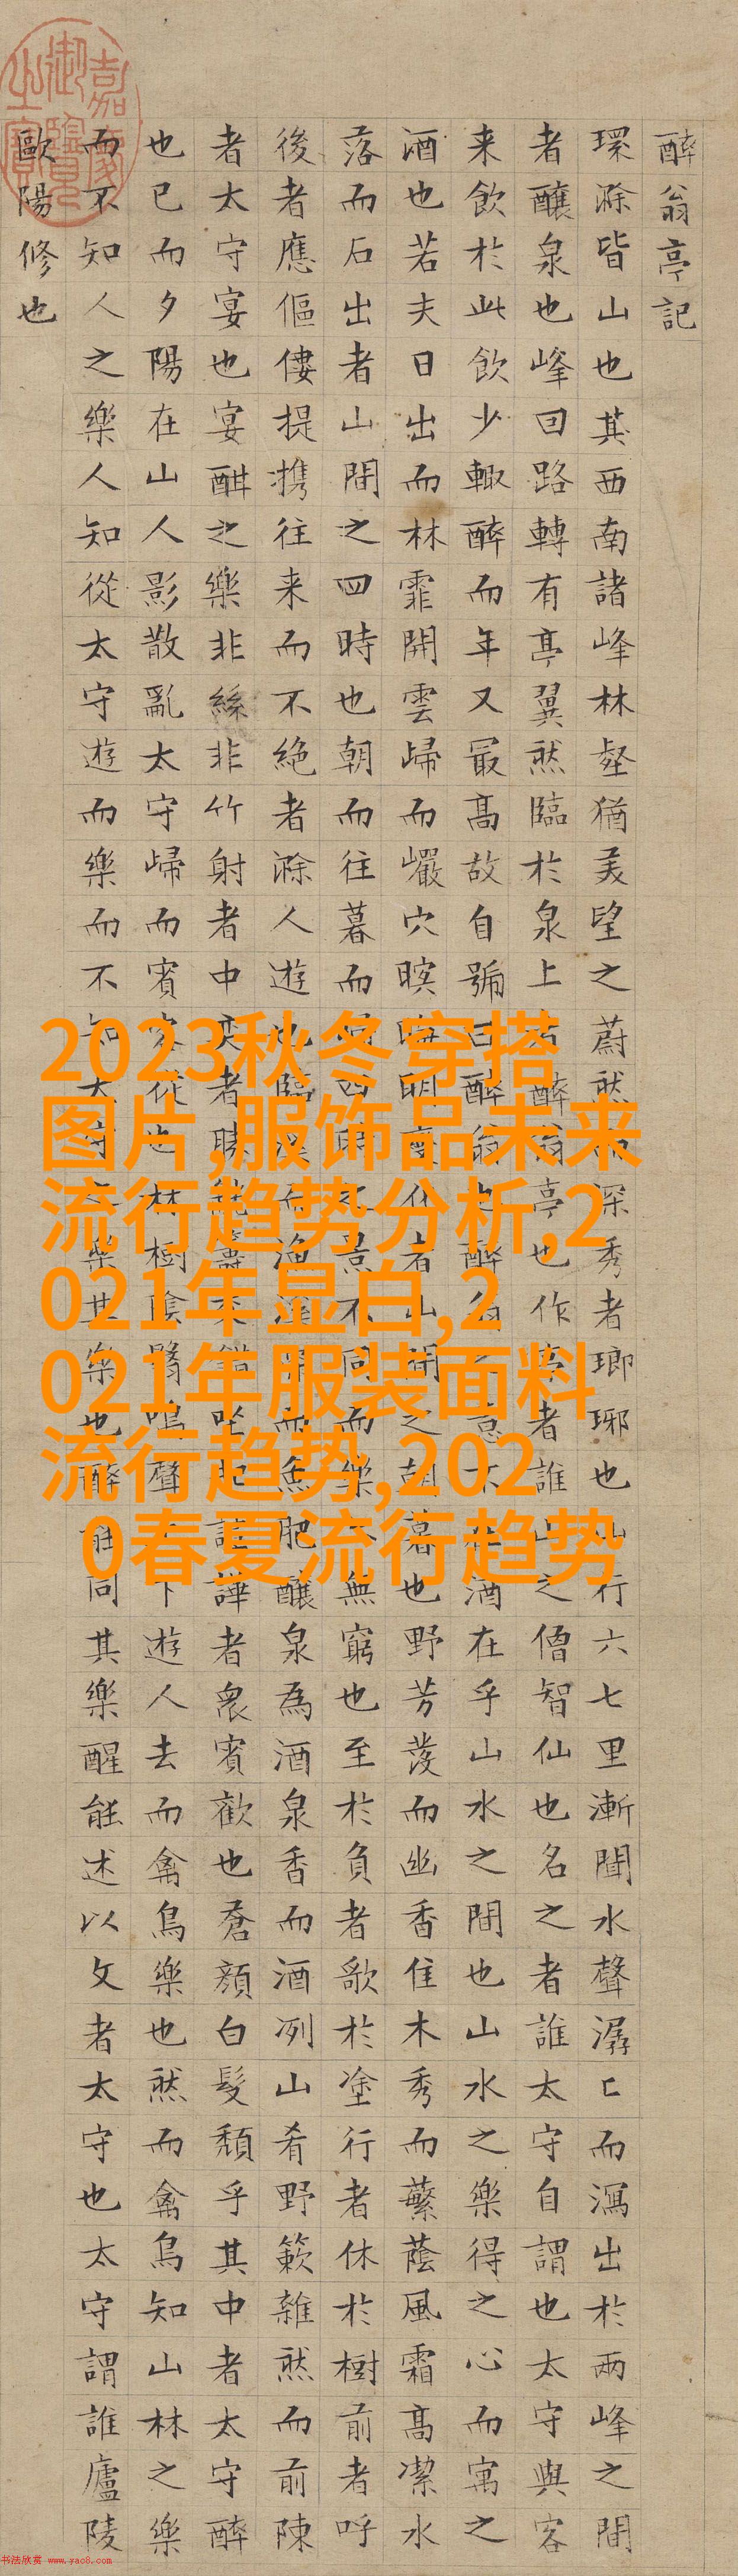 醉翁亭記
環滁皆山也其西南諸峰林壑猶美望之蔚然而深秀者瑯琊也山行六七里漸聞水聲潺〻而瀉出於兩峰之間
者釀泉也峰回路轉有亭翼然臨於泉上者醉翁亭也作亭者誰山之僧智仙也名之者誰太守自謂也太守與客
来飲於此飲少輒醉而年又最高故自號曰醉翁也醉翁之意不在酒在乎山水之間也山水之樂得之心而寓之
酒也若夫日出而林霏開雲歸而巖穴暝晦明變化者山間之朝暮也野芳發而幽香佳木秀而蘩蔭風霜高潔水
落而石出者山間之四時也朝而往暮而歸四時之景不同而樂亦無窮也至於負者歌於塗行者休於樹前者呼
後者應傴僂提携往来而不絶者滁人遊也臨溪而漁溪深而魚肥釀泉為酒泉香而酒冽山肴野簌雜然而前陳
者太守宴也宴酣之樂非絲非竹射者中奕者勝觥籌交錯坐起諠譁者衆賓歡也蒼顏白髮頹乎其中者太守醉
也已而夕陽在山人影散亂太守歸而賓客從也林樹陰翳鳴聲上下遊人去而禽鳥樂也然而禽鳥知山林之樂
而不知人之樂人知從太守遊而樂而不知太守之樂其樂也醉能同其樂醒能述以文者太守也太守謂誰廬陵
歐陽修也
嘉慶御覽之寶
2023秋冬穿搭
图片,服饰品未来
流行趋势分析,2
021年显白,2
021年服装面料
流行趋势,202
0春夏流行趋势
书法欣赏 www.yac8.com